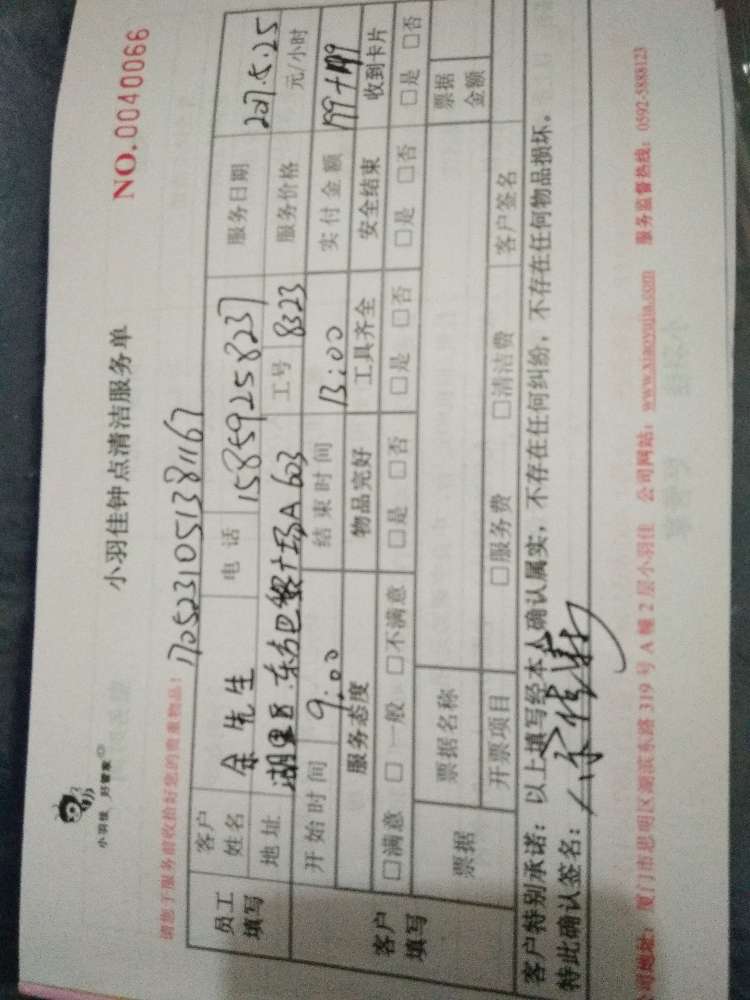 小羽佳 好管家
小羽佳钟点清洁服务单
NO.0040066
请您于服务前收拾好您的贵重物品!
1705231051381167
员工填写
客户姓名 余先生 电话 15859258237 服务日期 2017.5.25
地址 湖里区.东方巴黎广场A603 工号 8323 服务价格 元/小时
客户填写
开始时间 9:00 结束时间 13:00 实付金额
服务态度 物品完好 工具齐全 安全结束 收到卡片
□满意 □一般 □不满意 □是 □否 □是 □否 □是 □否 □是 □否
票据 票据名称 票据金额
开票项目 □服务费 □清洁费 客户签名
客户特别承诺:以上填写经本人确认属实,不存在任何纠纷,不存在任何物品损坏。
特此确认签名:
司地址:厦门市思明区湖滨东路319号A幢2层小羽佳 公司网站:www.xiaoyujia.com 服务监督热线:0592-5888123